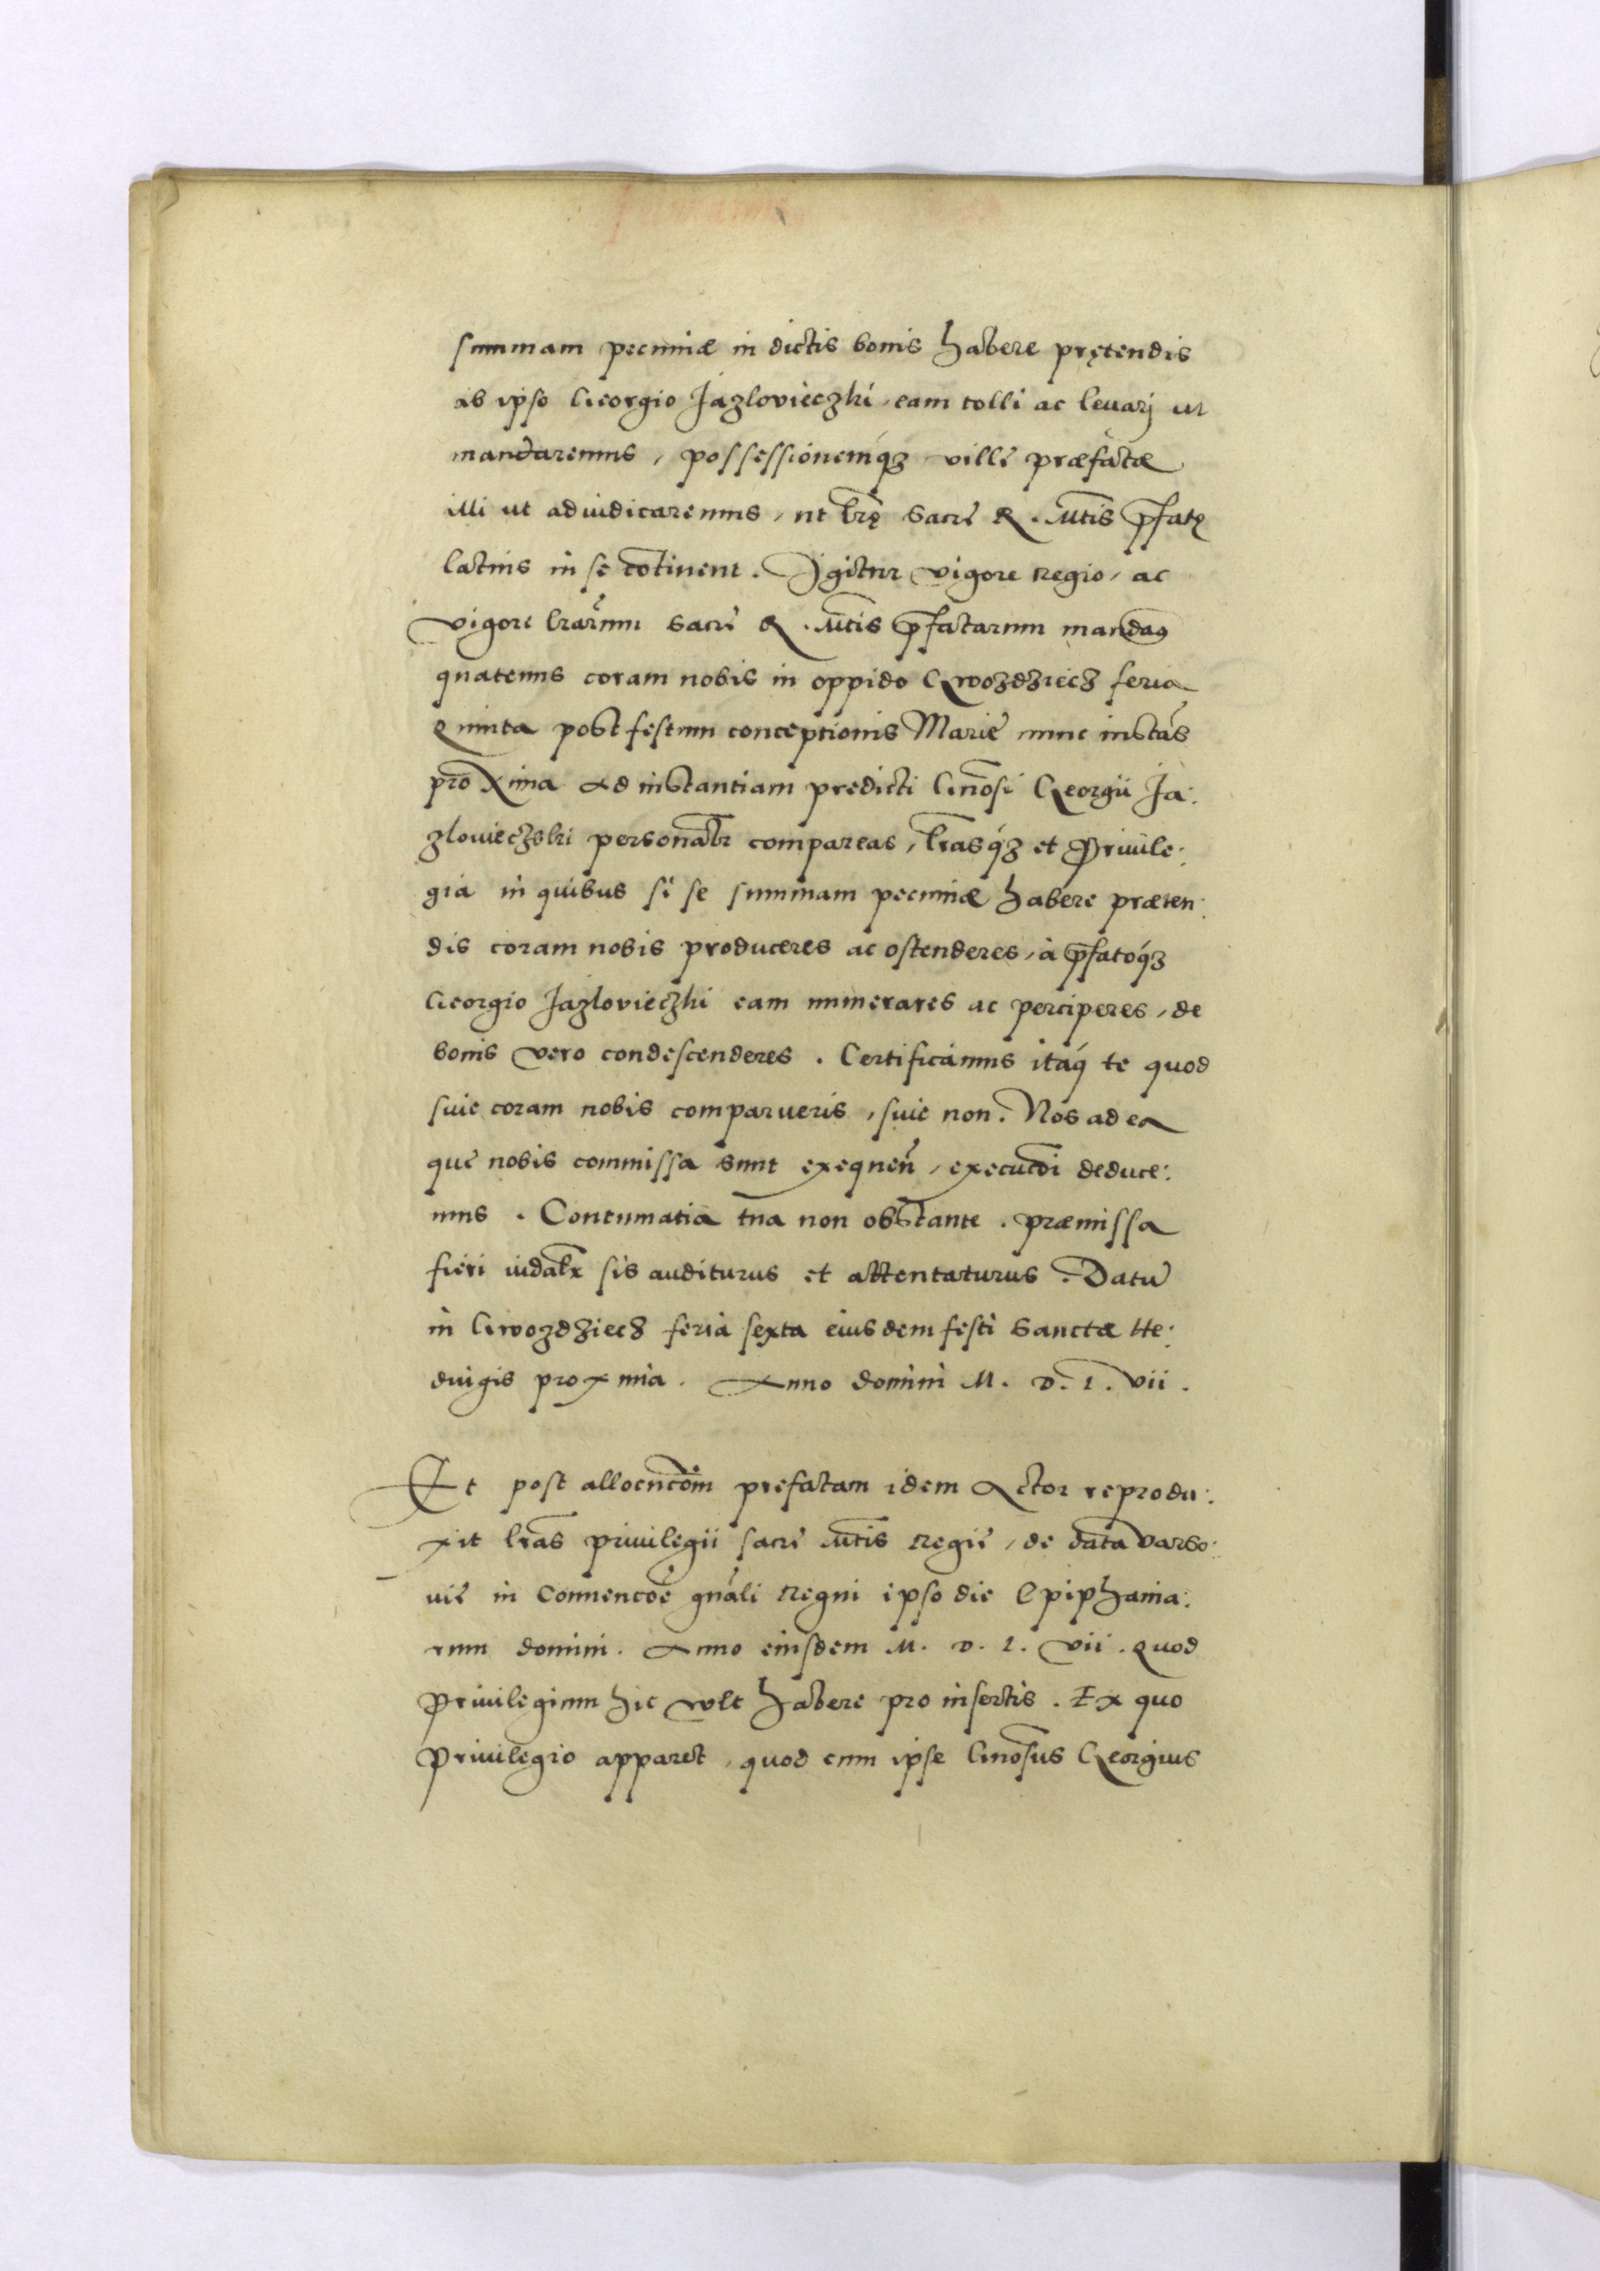 summam pecuniæ in dictis bonis habere prętendis
ab ipso Georgio Jazlovieczki, eam tolli ac levarj ut
mandaremus, possessionemq́ꝫ ville præfatæ
illi ut adiudicaremus, ut lr̃ę Sacre R. Mt̃is p̃fatę
latius in se cõtinent. Igitur vigore regio, ac
vigore lrãrum Sacre R. Mt̃is p̃fatarum mandamus
quatenus coram nobis in oppido Gwozdziecz feria
Quinta post festum conceptionis Marie nunc instãs
proxima ad instantiam predicti Gñosi Georgii Ja:
zlovieczski personalr̃ compareas, lr̃asq́ꝫ et Privile:
gia in quibus si se summam pecuniæ habere præten:
dis coram nobis produceres ac ostenderes, à p̃fatoq́ꝫ
Georgio Jazlovieczki eam numerares ac perciperes, de
bonis vero condescenderes. Certificamus itaq́ te quod
sive coram nobis comparueris, sive non. Nos ad ea
que nobis commissa sunt exequeñ, execucõi deduce:
mus. Contumatia tua non obstante. præmissa
fieri iudalr̃ sis auditurus et attentaturus. Datũ
in Gwozdziecz feria sexta eiusdem festi Sanctæ He:
dvigis proxima. Anno domini M. D. L. vii.
Et post allocucõm prefatam idem Actor reprodu:
xit lr̃as privilegii sacre Mt̃is Regie, de data Varso:
vie in Conuencõe gñali Regni ipso die Epiphania:
rum domini. Anno eiusdem M. D. L. vii. Quod
Privilegium hic vult habere pro insertis. Ex quo
Privilegio apparet, quod cum ipse Gñosus Georgius